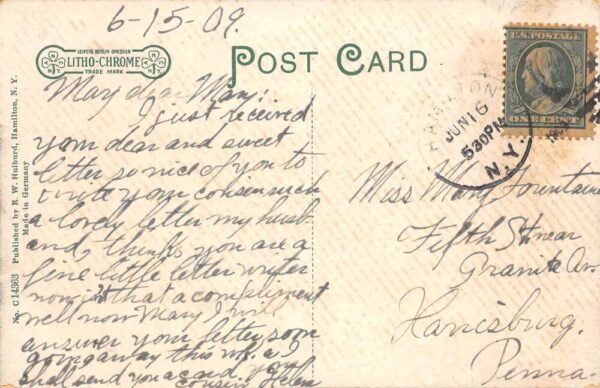 6-15-09.
LEIPZIG·BERLIN·DRESDEN
LITHO-CHROME
TRADE MARK
N.Y.
N.Y.
POST CARD
U.S. POSTAGE
ONE CENT
HAMILTON
JUN 16
530PM
N.Y.
No. C14363 Published by R. W. Hulburd, Hamilton, N. Y.
Made in Germany
My dear Mary:
I just received
your dear and sweet
letter so nice of you to
write your cousin such
a lovely letter my husb-
and, thinks you are a
fine little letter writer
now isn't that a compliment
well now Mary I will
answer your letter soon
going away this wk. & I
shall send you a card. your
cousin Helen
Miss Mary Fountaine
Fifth St near
Granite Av.
Harrisburg.
Penna.